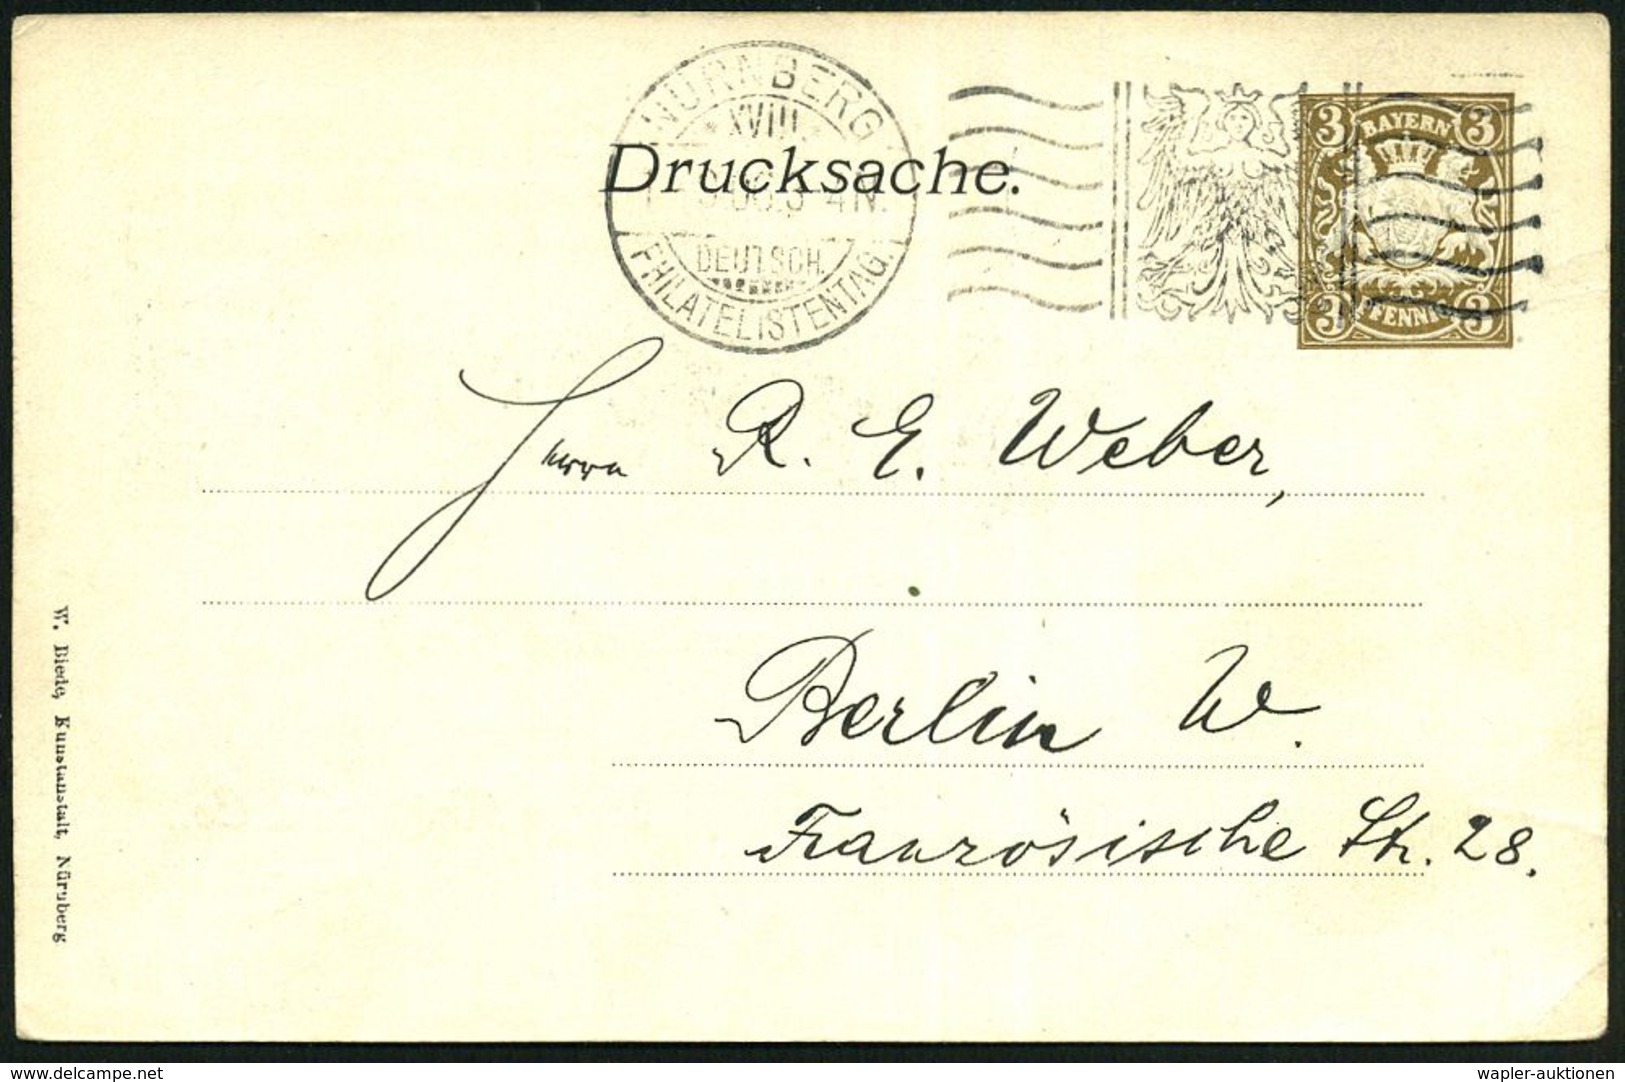 NÜRNBERG
XVIII.
Drucksache.
DEUTSCH.
PHILATELISTENTAG.
3 BAYERN 3
3 PFENNIG 3
Herrn R. E. Weber,
Berlin W.
Französische Str. 28.
W. Biede, Kunstanstalt, Nürnberg
www.delcampe.net
wapler-auktionen